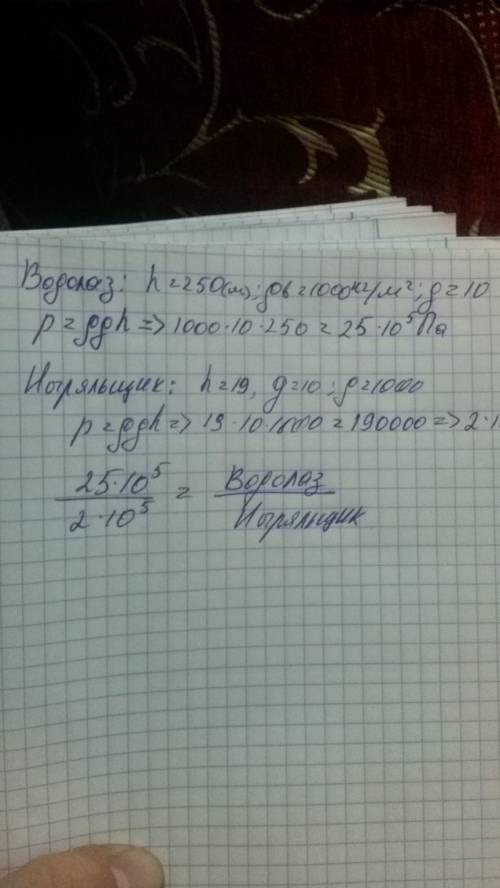 Водолаз: h=250(м); ρв=1000кг/м²; g=10
p=ρgh=>1000·10·250=25·10⁵Па
Ныряльщик: h=19, g=10; ρ=1000
p=ρgh=>19·10·1000=190000=>2·1
25·10⁵/2·10⁵ = Водолаз/Ныряльщик